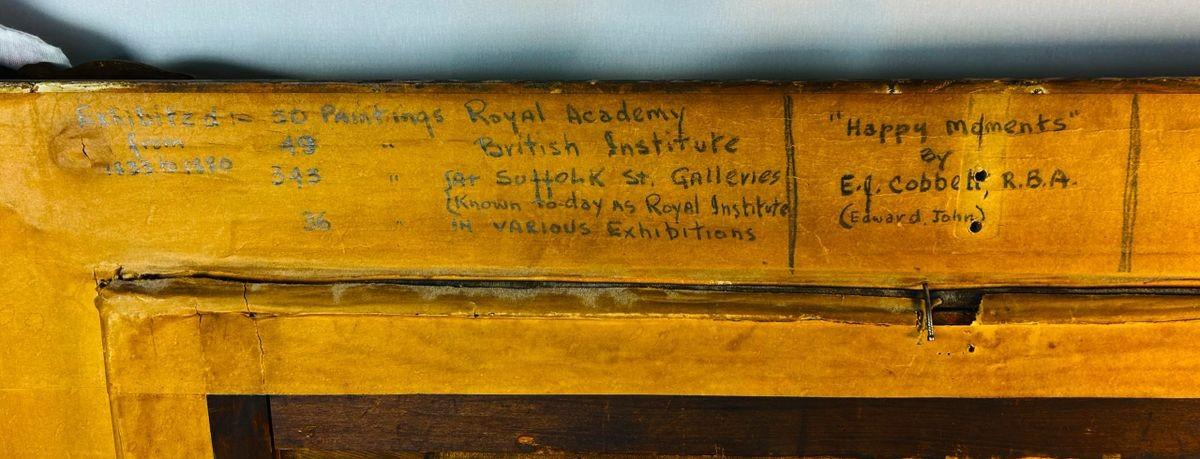 Exhibited = 50 Paintings Royal Academy
from 49 " British Institute
1833 to 1880 343 " (At Suffolk St. Galleries
(Known to-day as Royal Institute
36 " in various Exhibitions
"Happy Moments"
By
E.J. Cobbett, R.B.A.
(Edward John)